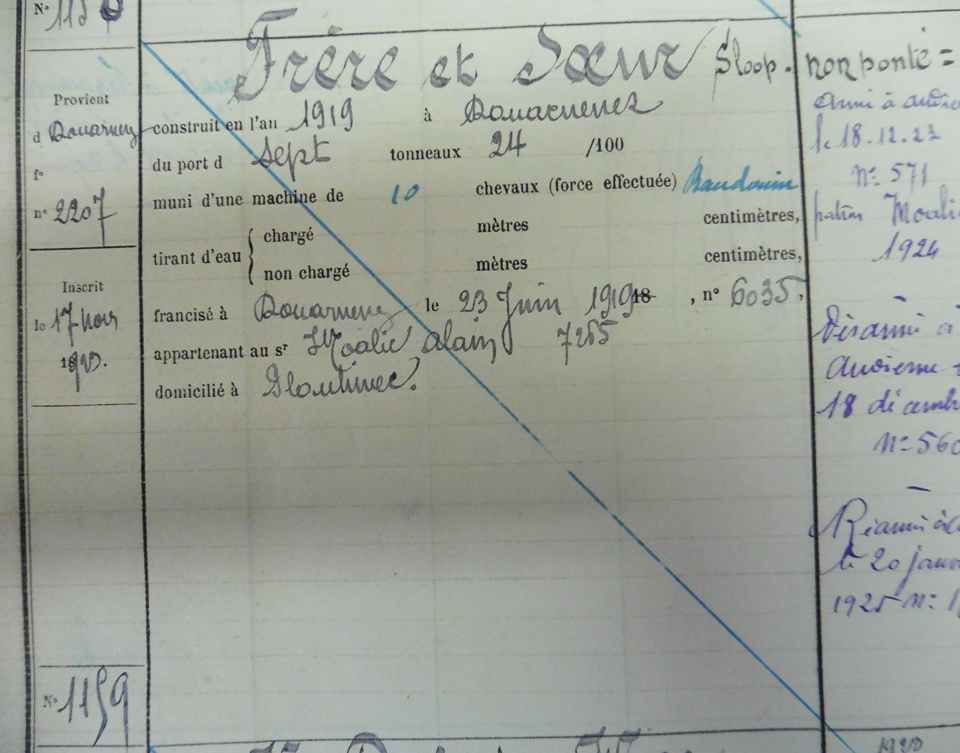 N°
Frère et Sœur Sloop. non ponté =
Provient
d Douarnenez
f°
n° 2207
construit en l'an 1919 à Douarnenez
du port d sept tonneaux 24 /100
muni d'une machine de 10 chevaux (force effectuée) Baudouin
tirant d'eau { chargé mètres centimètres,
non chargé mètres centimètres,
Inscrit
le 17
francisé à Douarnenez le 23 Juin 1919 18, n° 6035.
appartenant au sr Moalic Alain 7265
domicilié à Plouhinec.
Armé à Audie
le 18.12.23
N° 571
patron Moalic
1924
Désarmé à
Audierne
18 décemb
N° 560
Réarmé à
le 20 janv
1925 N°
N° 1159